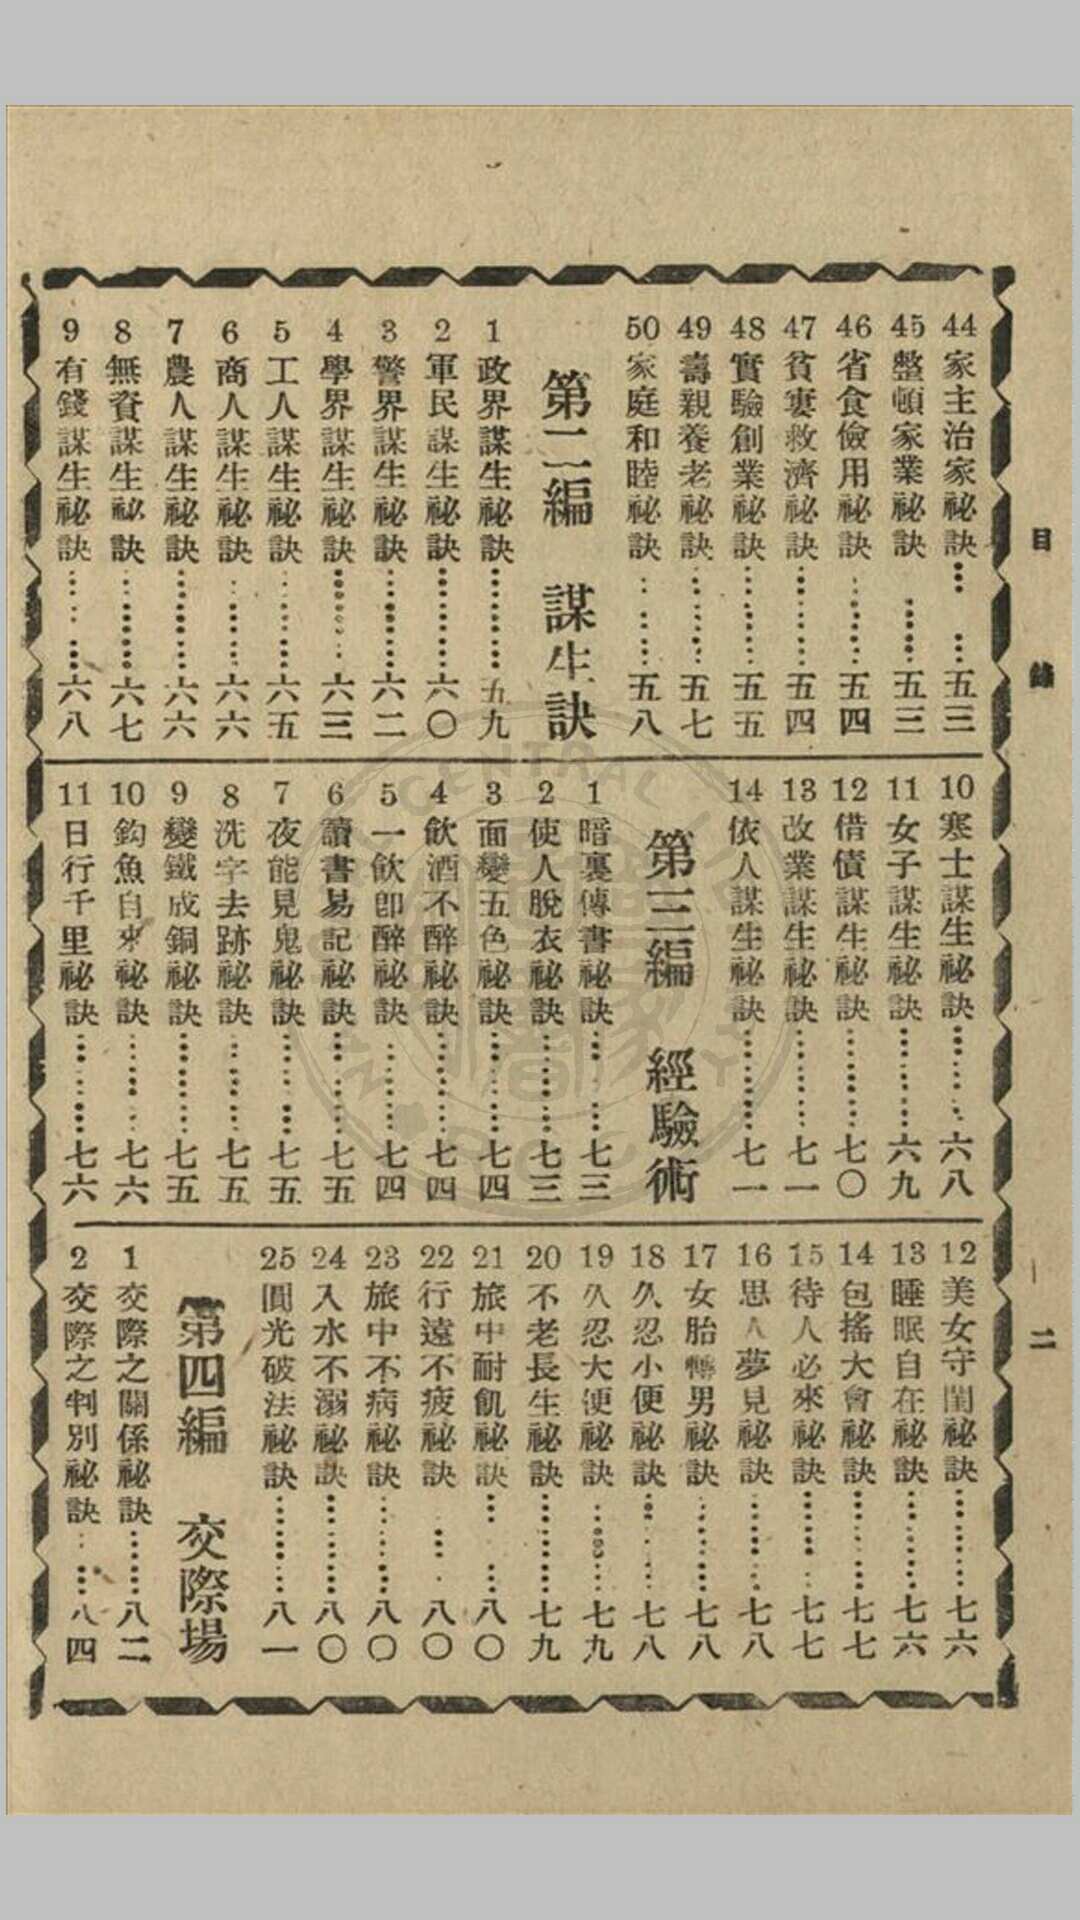 目錄
二
44 家主治家秘訣……五三
45 整頓家業秘訣……五三
46 省食儉用秘訣……五四
47 貧寠救濟秘訣……五四
48 實驗創業秘訣……五五
49 壽親養老秘訣……五七
50 家庭和睦秘訣……五八
第二編 謀生訣
1 政界謀生秘訣……五九
2 軍民謀生秘訣……六〇
3 警界謀生秘訣……六二
4 學界謀生秘訣……六三
5 工人謀生秘訣……六五
6 商人謀生秘訣……六六
7 農人謀生秘訣……六六
8 無資謀生秘訣……六七
9 有錢謀生秘訣……六八
10 寒士謀生秘訣……六八
11 女子謀生秘訣……六九
12 借債謀生秘訣……七〇
13 改業謀生秘訣……七一
14 依人謀生秘訣……七一
第三編 經驗術
1 暗裏傳書秘訣……七三
2 使人脫衣秘訣……七三
3 面變五色秘訣……七四
4 飲酒不醉秘訣……七四
5 一飲卽醉秘訣……七四
6 讀書易記秘訣……七五
7 夜能見鬼秘訣……七五
8 洗字去跡秘訣……七五
9 變鐵成銅秘訣……七五
10 鈎魚自來秘訣……七六
11 日行千里秘訣……七六
12 美女守閨秘訣……七六
13 睡眠自在秘訣……七六
14 包搖大會秘訣……七七
15 待人必來秘訣……七七
16 思人夢見秘訣……七八
17 女胎轉男秘訣……七八
18 久忍小便秘訣……七八
19 久忍大便秘訣……七九
20 不老長生秘訣……七九
21 旅中耐飢秘訣……八〇
22 行遠不疲秘訣……八〇
23 旅中不病秘訣……八〇
24 入水不溺秘訣……八〇
25 圓光破法秘訣……八一
第四編 交際場
1 交際之關係秘訣……八二
2 交際之判別秘訣……八四